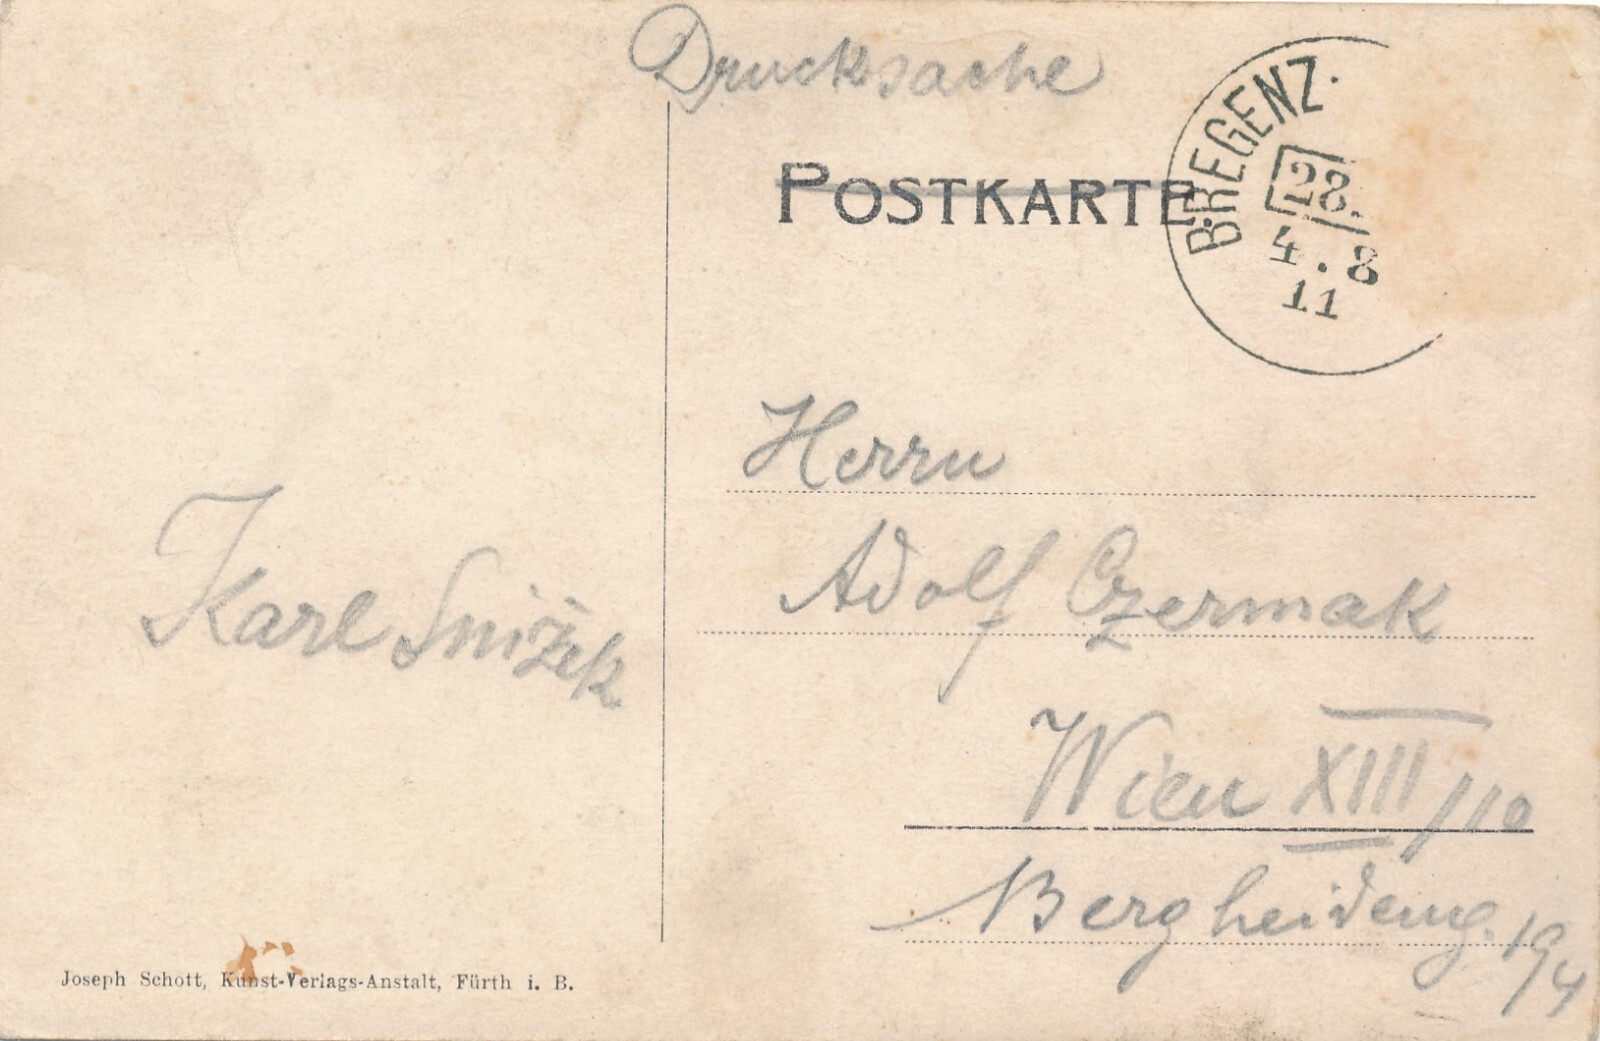 Drucksache
POSTKARTE
BREGENZ.
28.
4.8
11
Herrn
Adolf Czermak
Wien XIII/10
Bergheideng. 19/4
Karl Snižek
Joseph Schott, Kunst-Verlags-Anstalt, Fürth i. B.